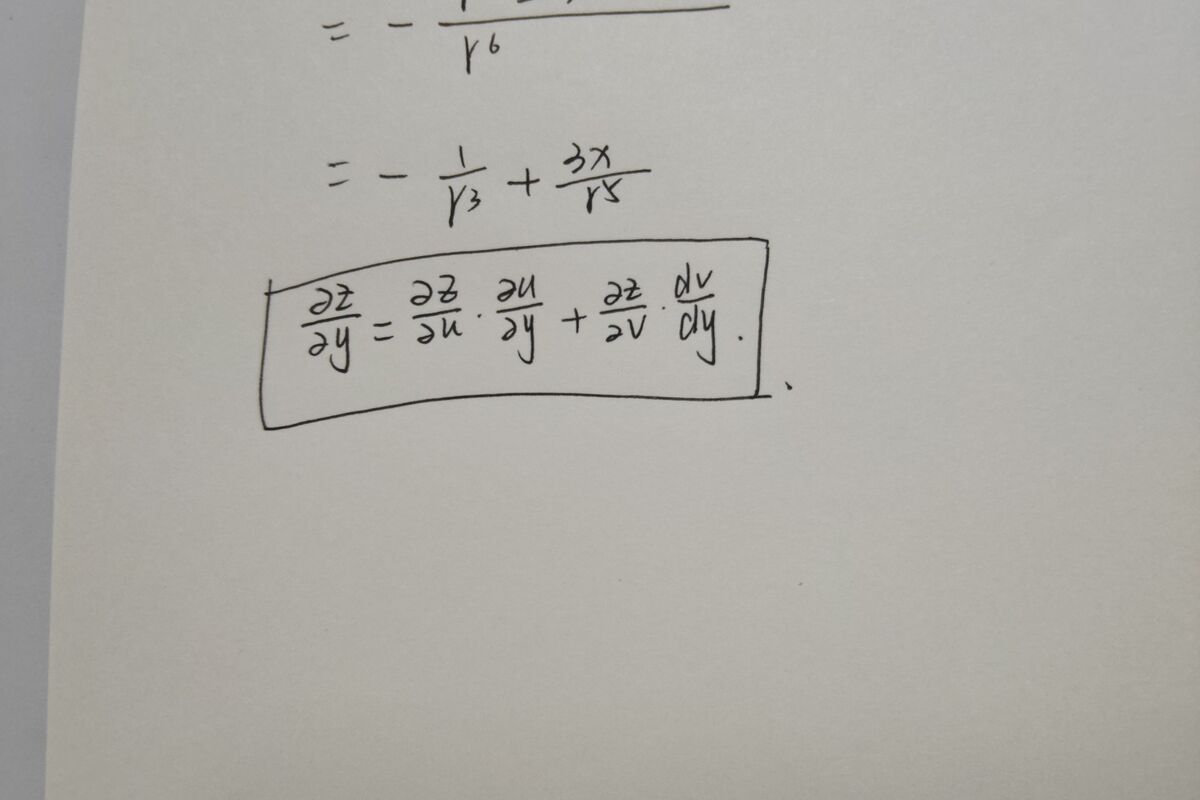 = - / r⁶
= - 1/r³ + 3x/r⁵
∂z/∂y = ∂z/∂u · ∂u/∂y + ∂z/∂v · dv/dy .